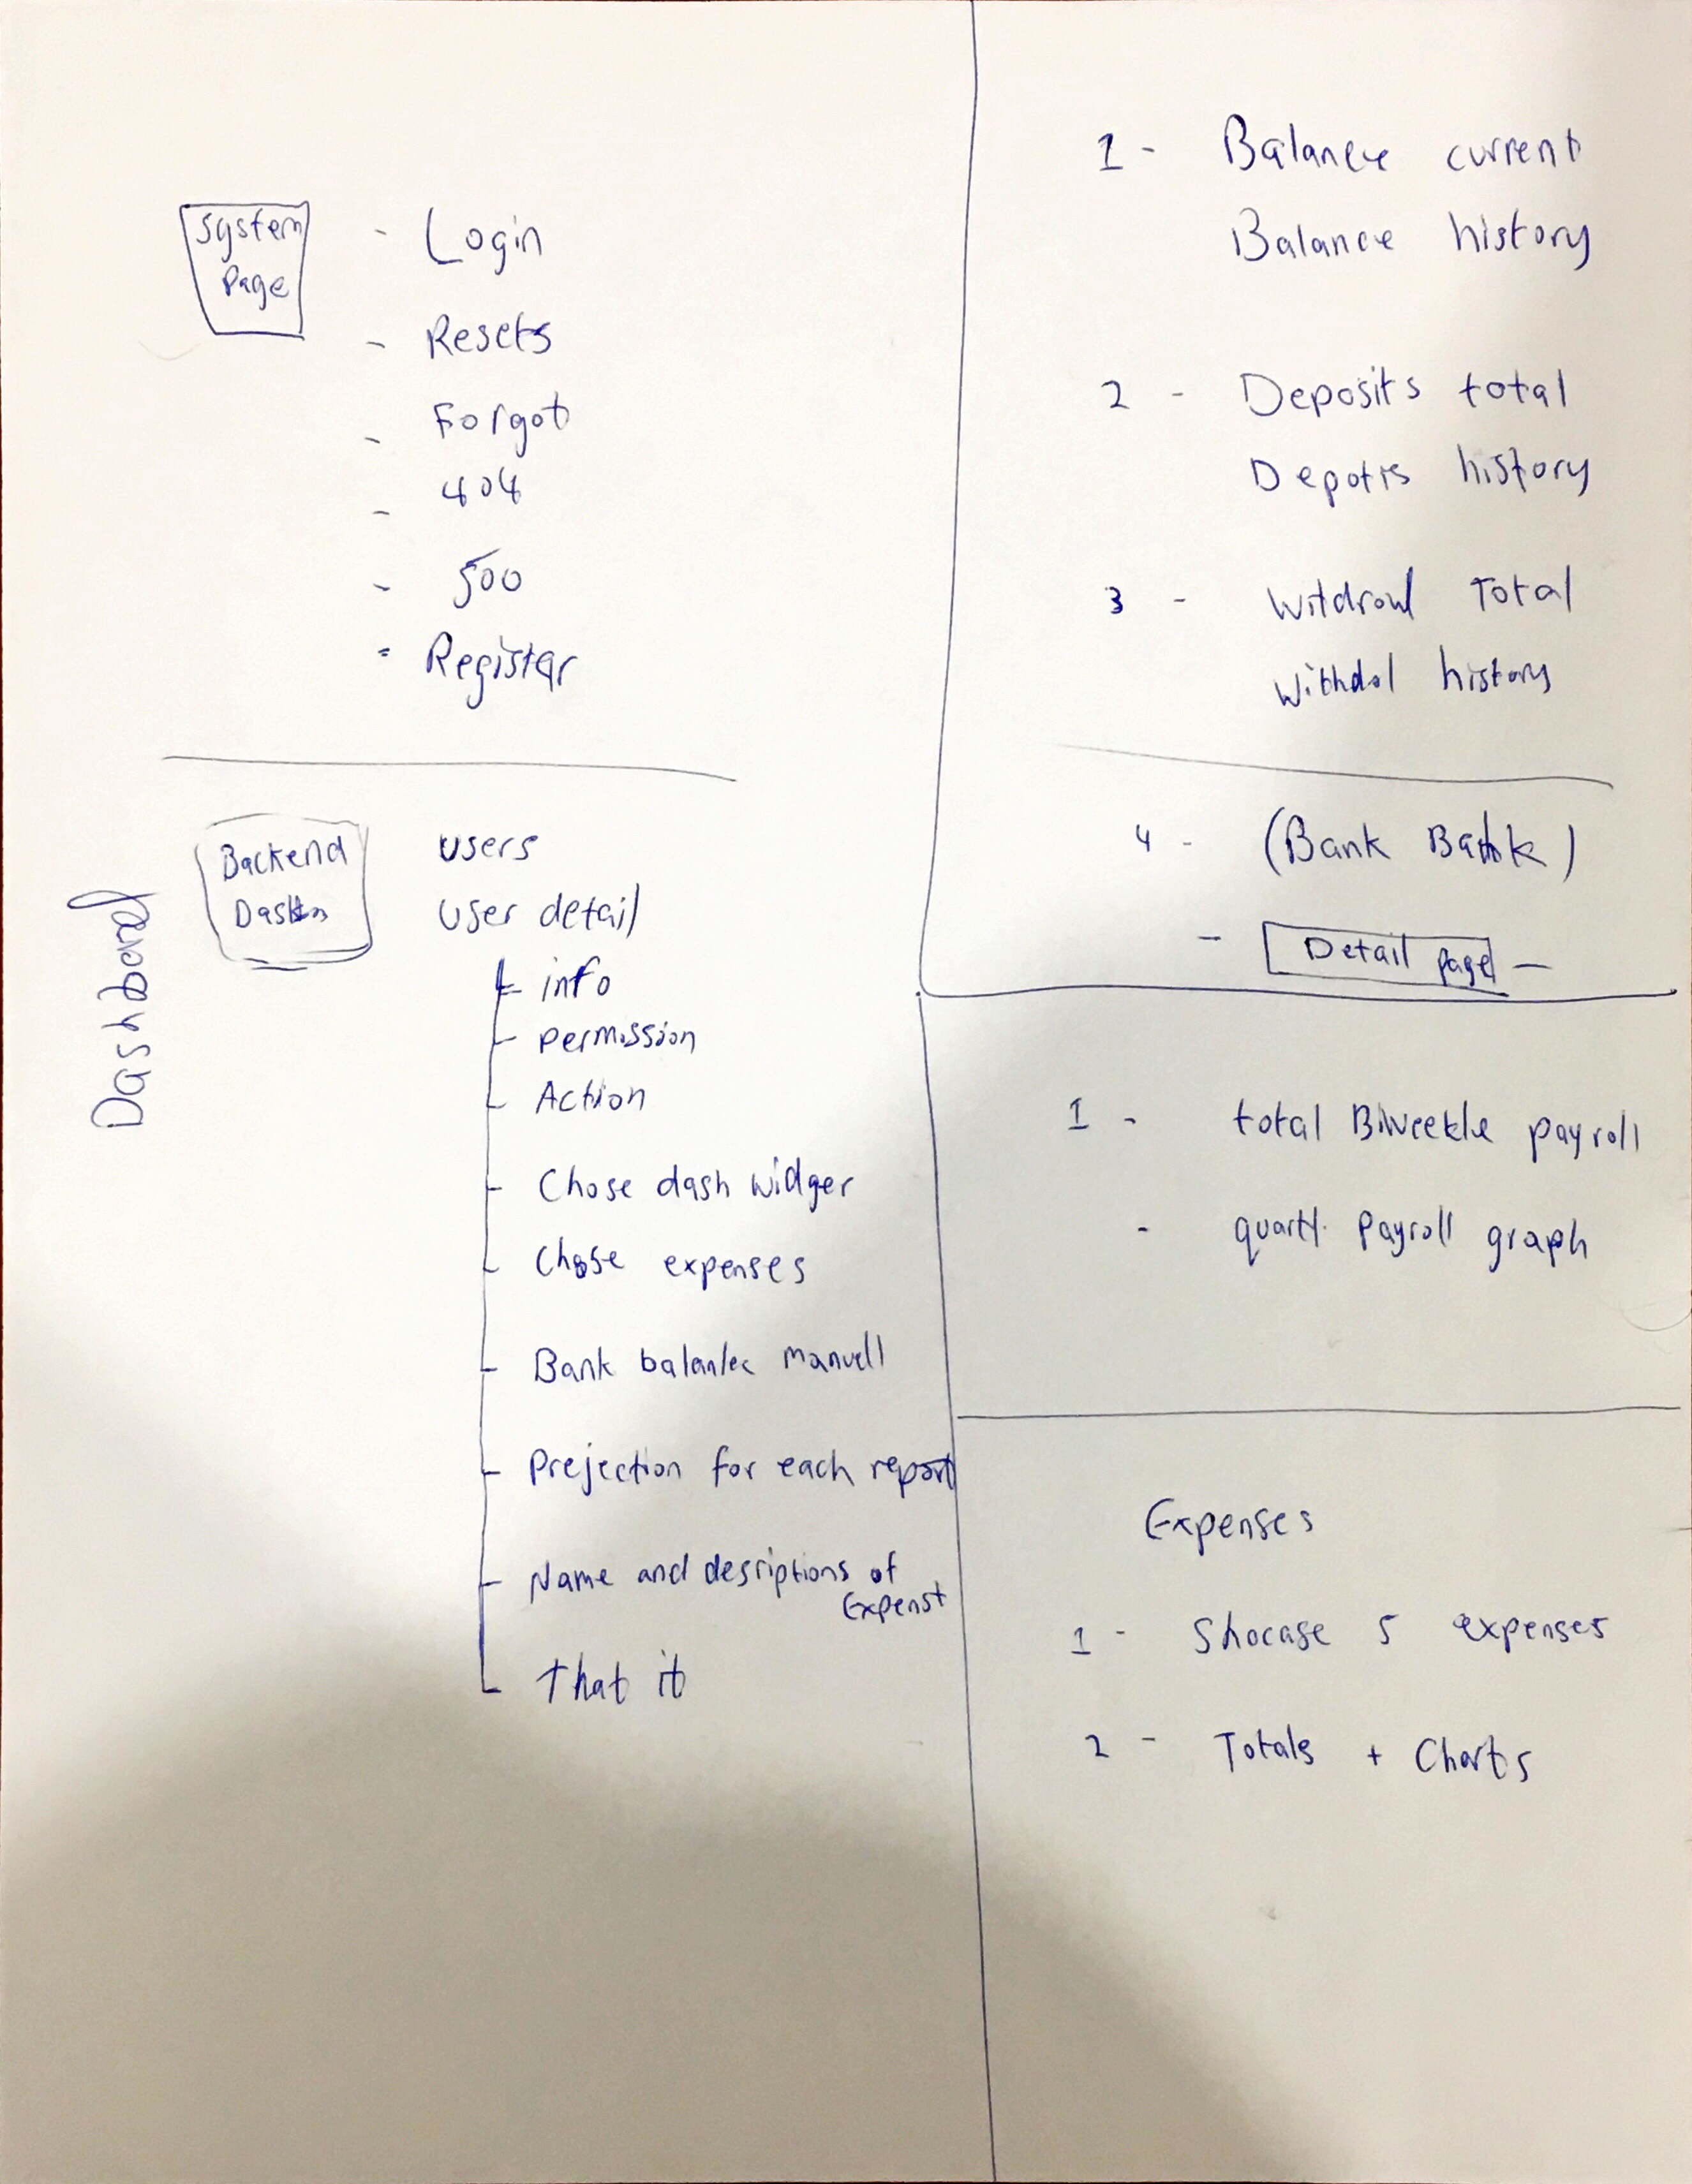 System
Page
- Login
- Resets
- Forgot
- 404
- 500
- Register
Dashboard
Backend
users
user detail
info
permission
Action
Chose dash widger
Chose expenses
Bank balanlec manuell
Prejection for each report
Name and desriptions of
Expenst
That it
1 - Balance current
Balance history
2 - Deposits total
Depotis history
3 - Witdrowl Total
Withdol history
4 - (Bank
- Detail page -
1 - total Biweekle payroll
- quartl. Payroll graph
Expenses
1 - Shocase 5 expenses
2 - Totals + Charts